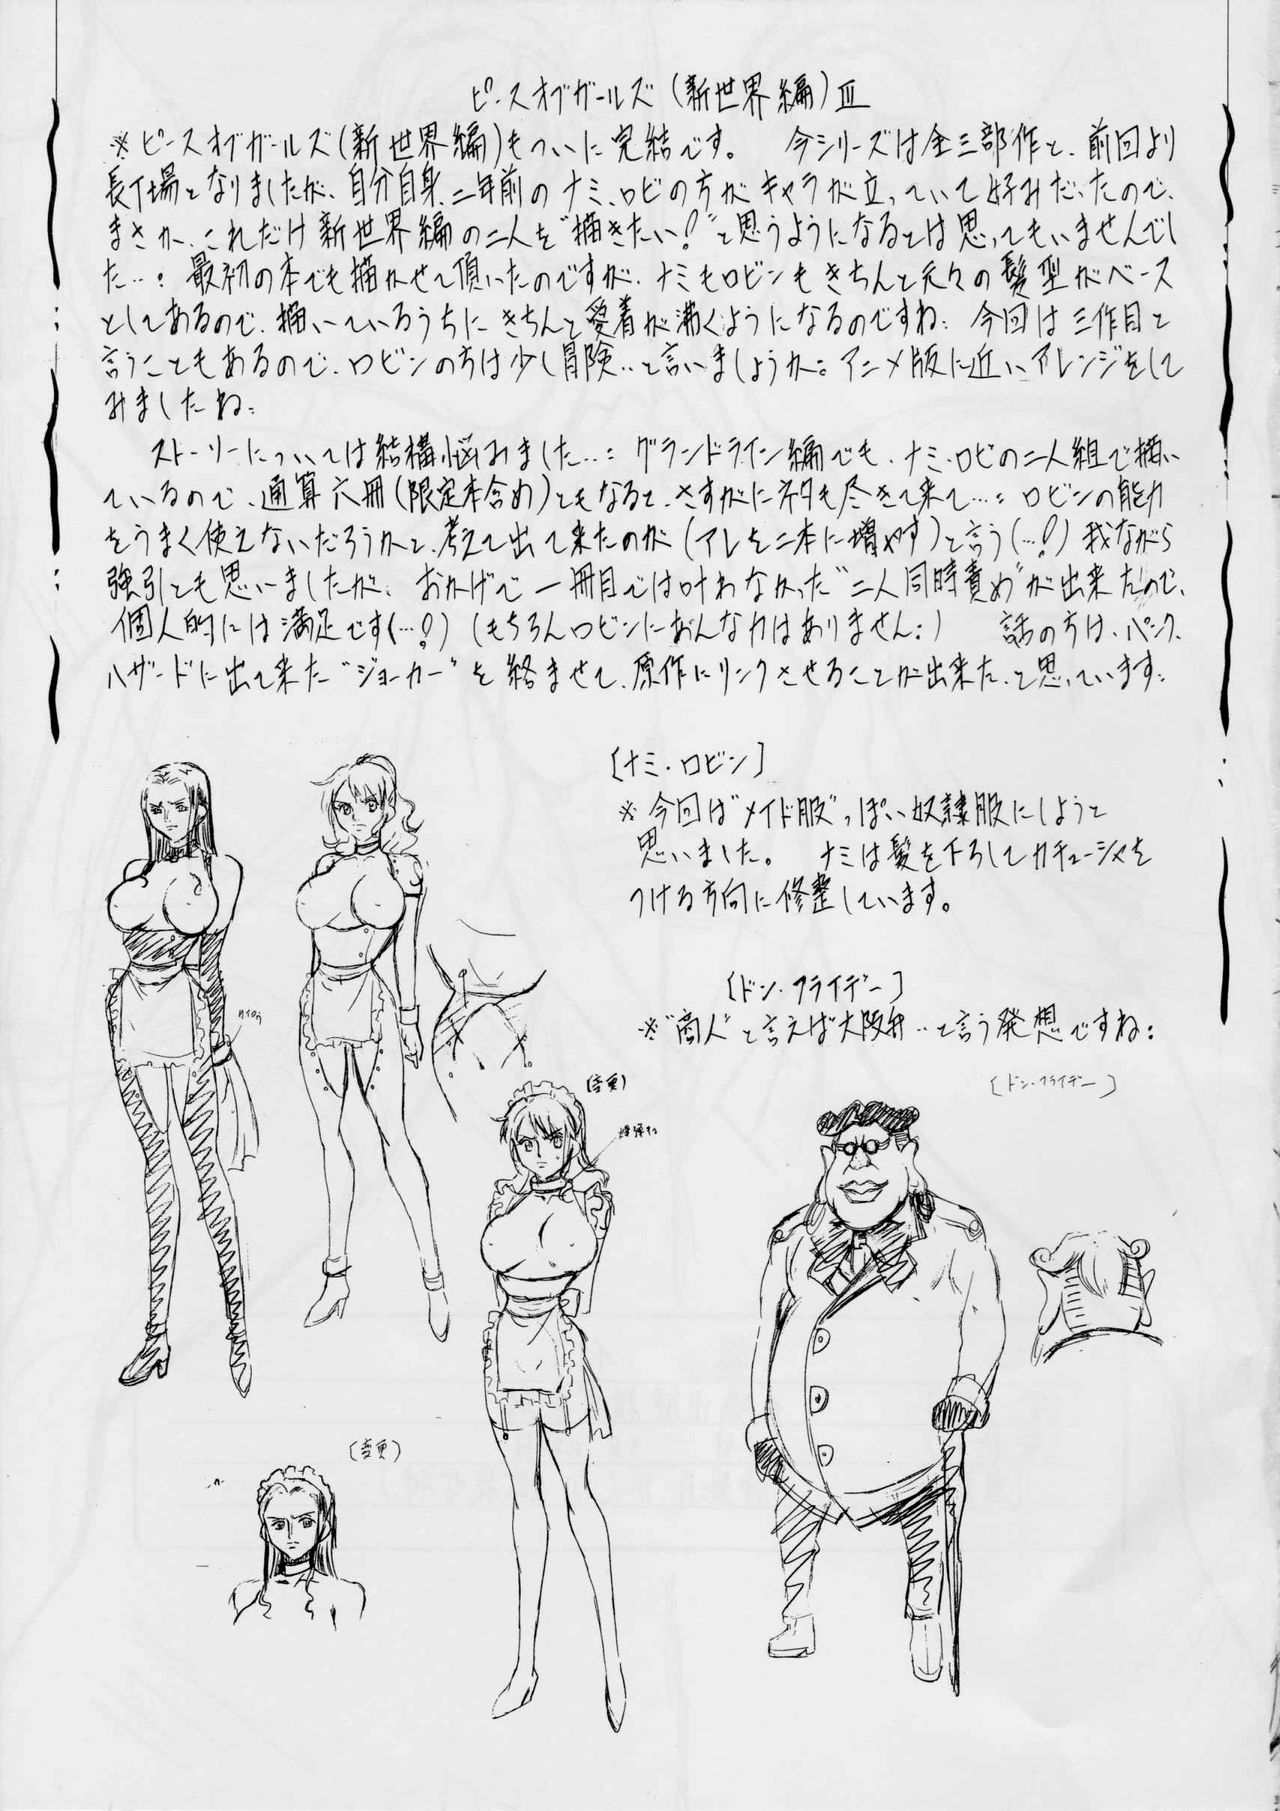 ピースオブガールズ(新世界編)Ⅲ
※ピースオブガールズ(新世界編)もついに完結です。 今シリーズは全三部作と、前回より
長丁場となりましたが、自分自身、二年前のナミ、ロビの方がキャラが立っていて好みだったので、
まさか、これだけ新世界編の二人を"描きたい!"と思うようになるとは思ってもいませんでし
た…: 最初の本でも描かせて頂いたのですが、ナミもロビンもきちんと元々の髪型がベース
としてあるので、描いているうちにきちんと愛着が沸くようになるのですね: 今回は三作目と
言うこともあるので、ロビンの方は少し冒険‥と言いましょうか。アニメ版に近いアレンジをして
みましたね:
ストーリーについては結構悩みました…: グランドライン編でも、ナミ・ロビの二人組で描い
ているので、通算六冊(限定本含め)ともなると、さすがにネタも尽きて来て…: ロビンの能力
をうまく使えないだろうかと、考えて出て来たのが(アレを二本に増やす)と言う(…!?)我ながら
強引とも思いましたが、おかげで一冊目では叶わなかった"二人同時責め"が出来たので、
個人的には満足です(…!?)(もちろんロビンにあんな力はありません:) 話の方は、パンク
ハザードに出て来た"ジョーカー"を絡ませて、原作にリンクさせることが出来た、と思っています:
[ナミ・ロビン]
※今回は"メイド服"っぽい奴隷服にしようと
思いました。 ナミは髪を下ろしてカチューシャを
つける方向に修整しています。
[ドン・フライデー]
※"商人"と言えば大阪弁‥と言う発想ですね:
[ドン・フライデー]
(変更)
(変更)